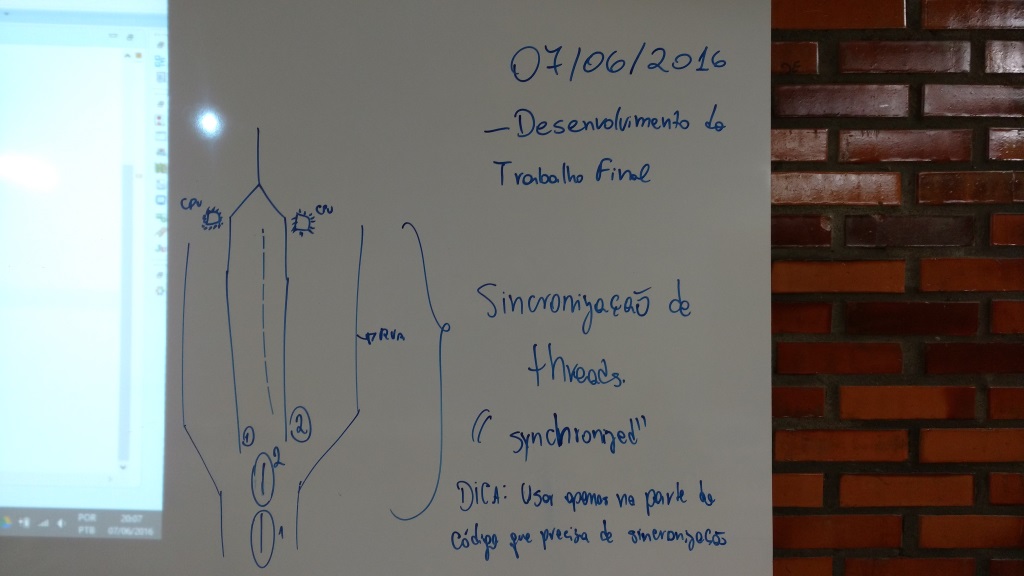 07/06/2016
– Desenvolvimento do
Trabalho Final
CPU
CPU
RUA
Sincronização de
threads.
"synchronized"
DICA: Usar apenas na parte do
código que precisa de sincronização
1
2
2
1
POR
20:07
PTB
07/06/2016